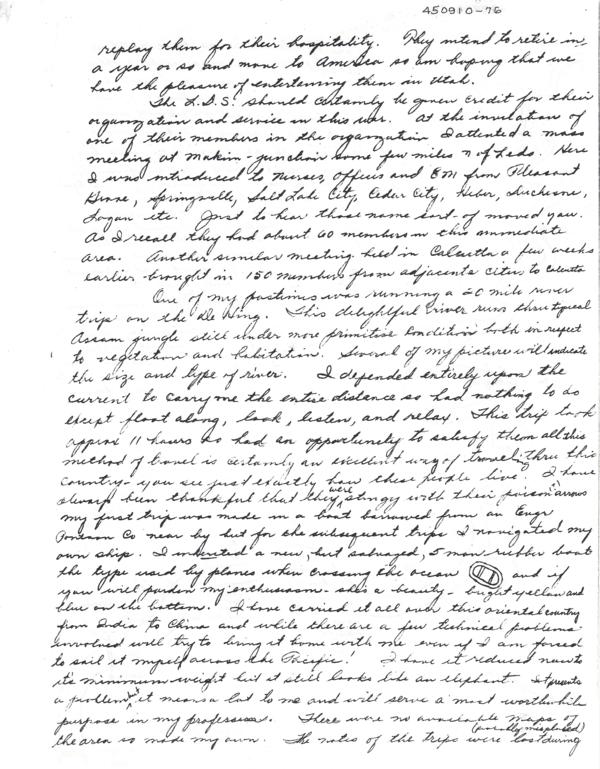 450910-76
replay them for their hospitality. They intend to retire in
a year or so and move to America so am hoping that we
have the pleasure of entertaining them in Utah.
The L.D.S. should certainly be given credit for their
organization and service in this war. At the invitation of
one of their members in the organization I attented a mass
meeting at Makum-junction some few miles n of Ledo. Here
I was introduced to nurses, officers and EM from Pleasant
Grove, Springville, Salt Lake City, Cedar City, Heber, Duchesne,
Logan etc. Just to hear those name sort-of moved you.
As I recall they had about 60 members in this immediate
area. Another similar meeting held in Calcutta a few weeks
earlier brought in 150 members from adjacents cities to Calcutta
One of my pastimes was running a 20 mile river
trip on the De Hing. This delightful river runs thru typical
Assam jungle still under more primitive condition both in respect
to vegetation and habitation. Several of my pictures will indicate
the size and type of river. I depended entirely upon the
current to carry me the entire distance so had nothing to do
except float along, look, listen, and relax. This trip took
approx 11 hours so had an opportunity to satisfy them all this
method of travel is certainly an excellent way of traveling thru this
country - you see just exactly how these people live. I have
always been thankful that they were stingy with their poison arrows
my first trip was made in a boat borrowed from an Engr
Pontoon Co near by but for the subsequent trips I navigated my
own ship. I inherited a new, but salvaged, 5 man rubber boat
the type used by planes when crossing the ocean and if
you will pardon my enthusiasm - she's a beauty - bright yellow and
blue on the bottom. I have carried it all over this oriental country
from India to China and while there are a few technical problems
involved will try to bring it home with me even if I am forced
to sail it myself across the Pacific! I have it reduced now to
its minimum weight but it still looks like an elephant. It presents
a problem but it means a lot to me and will serve a most worthwhile
purpose in my profession. There were no available maps of
the area so made my own. The notes of the trips were lost (possibly misplaced) during